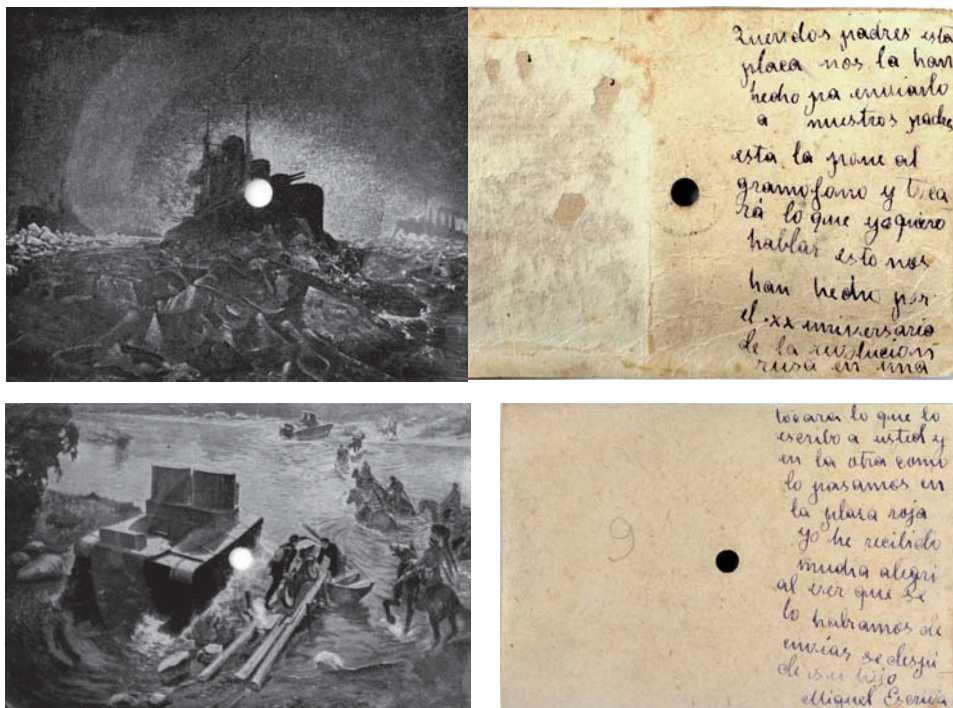 Queridos padres esta
placa nos la han
hecho pa enviarlo
a nuestros padres
esta la pone al
gramofono y toca
rá lo que yo quiero
hablar esto nos
han hecho por
el xx aniversario
de la revolucion
rusa en una
tocara lo que lo
escribo a usted y
en la otra como
lo pasamos en
la plasa roja
yo he recibido
mucha alegri
al ver que se
lo habiamos de
enviar se despi
de su hijo
Miguel Escriva
9